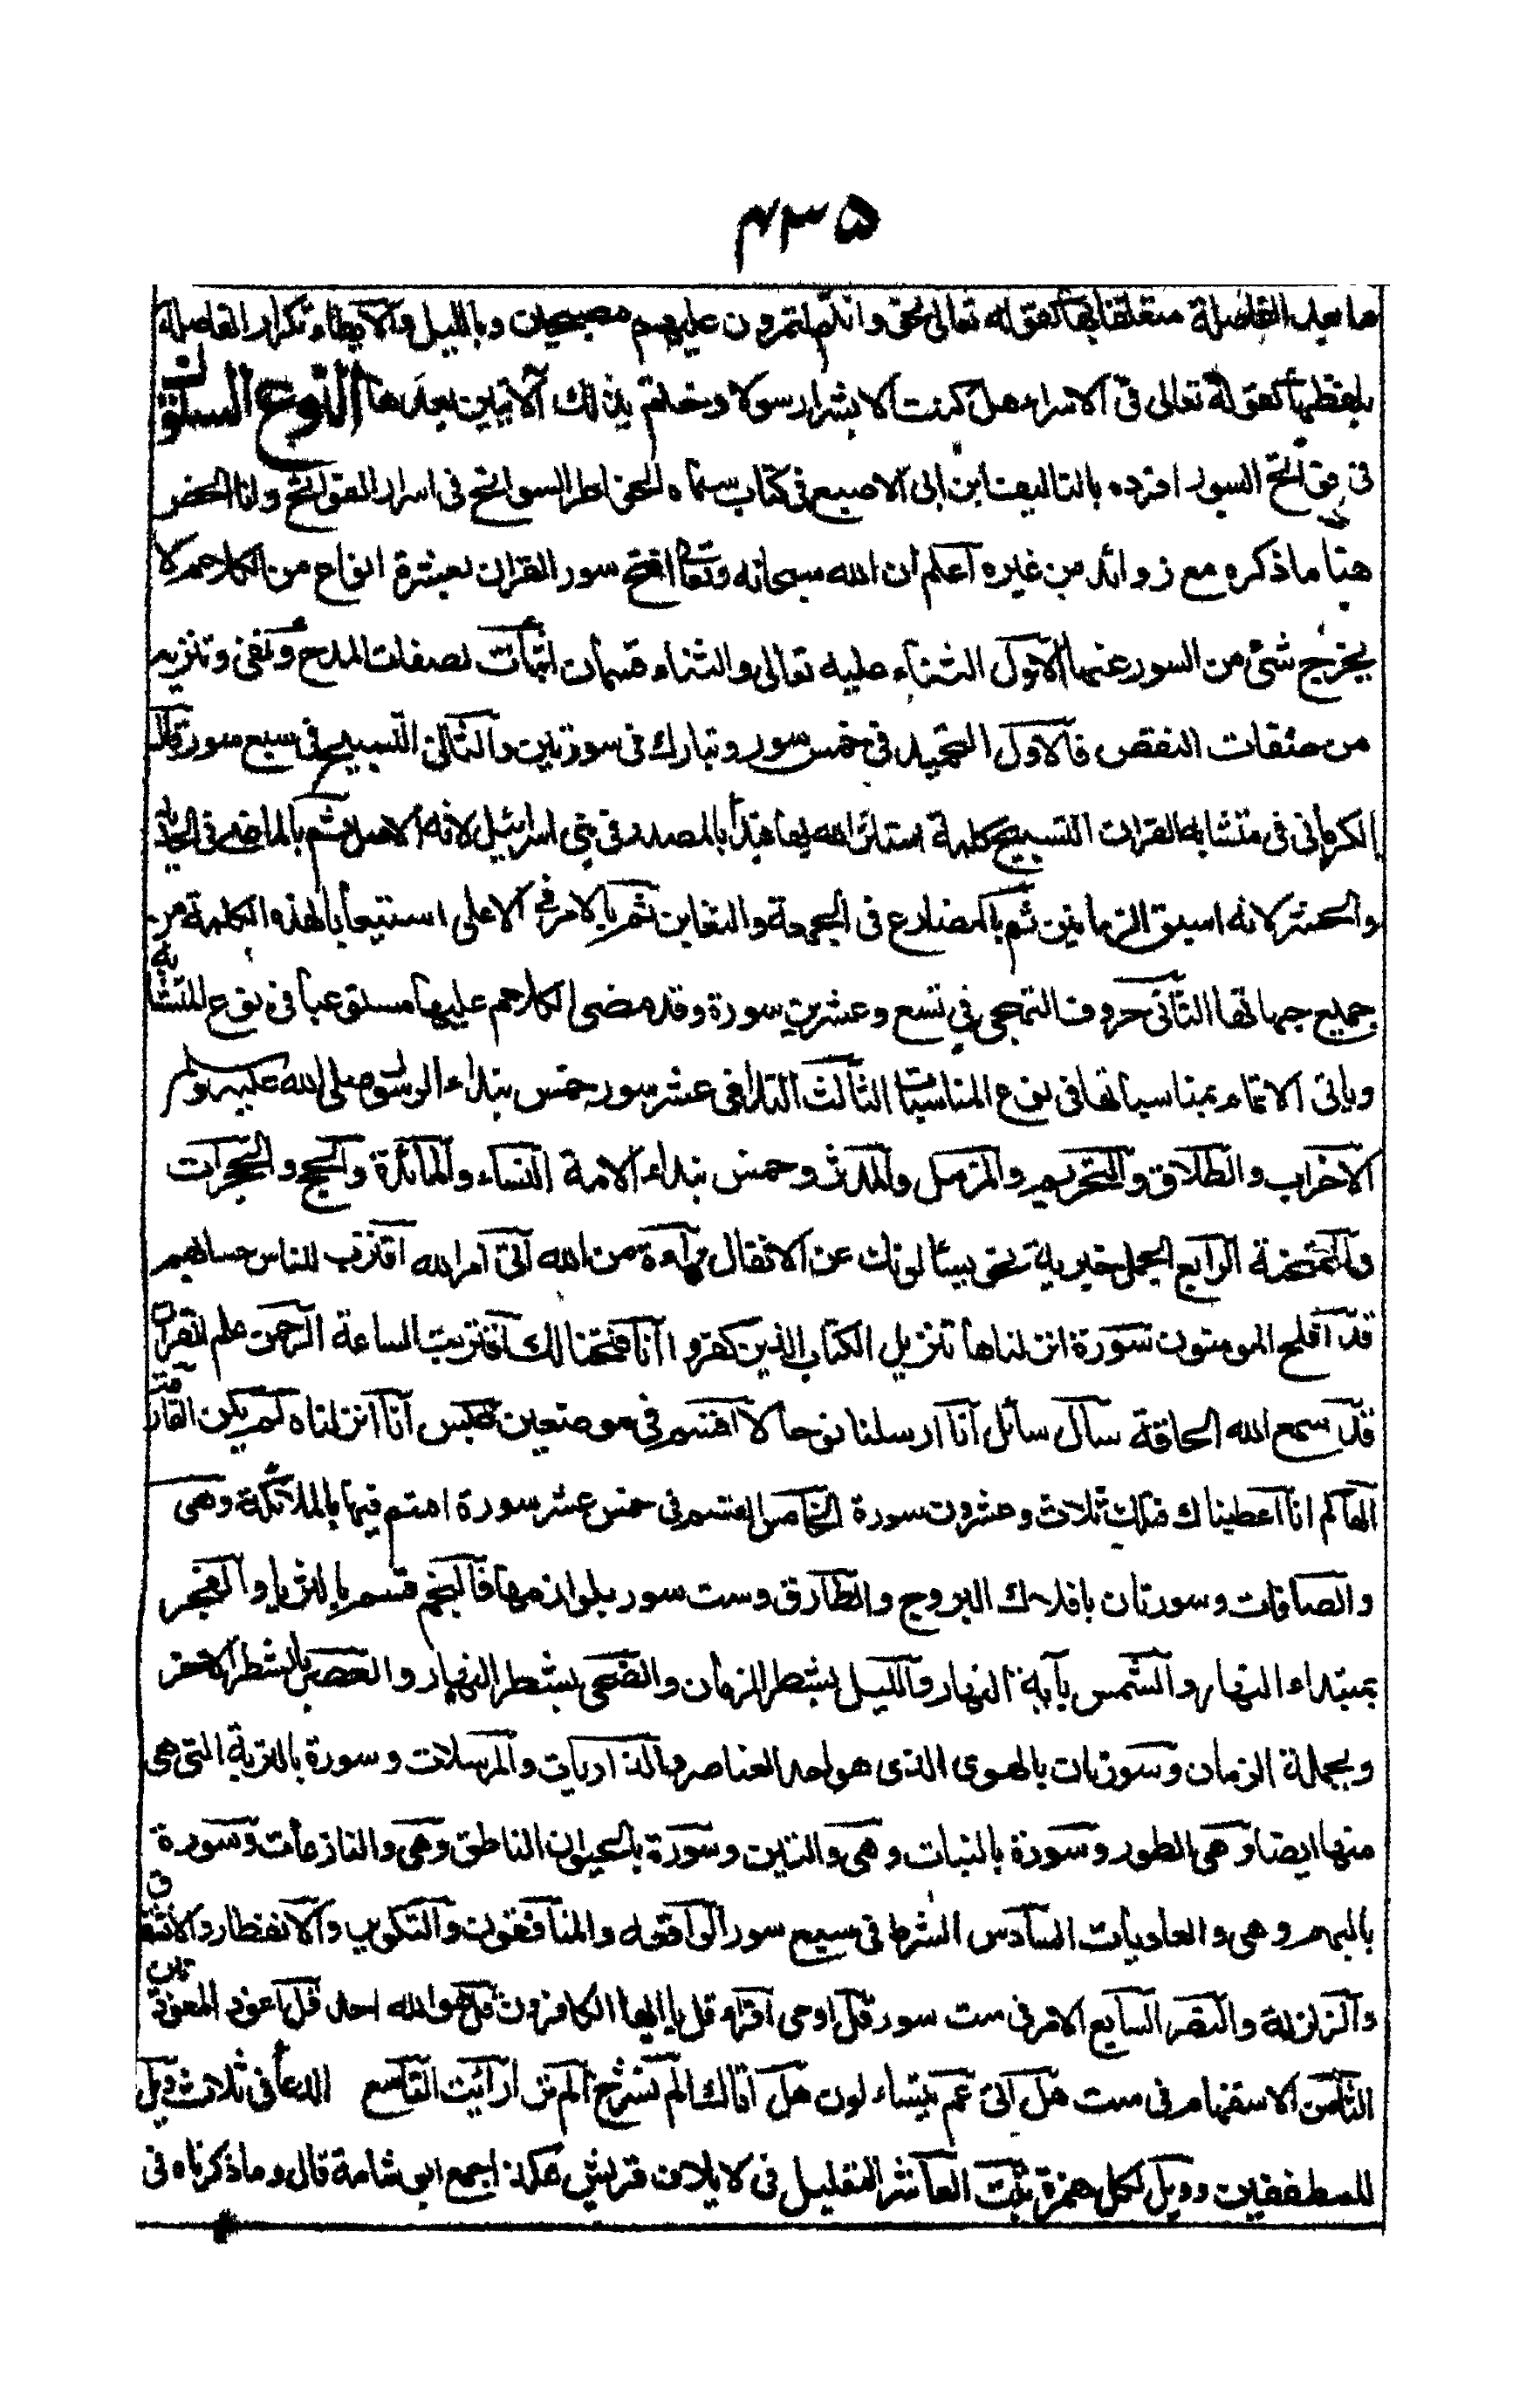 ۴۳۵
ما بعد الفاصلة متعلقا بها كقوله تعالى نحو وانكم لتمرون عليهم مصبحين وبالليل والايطاء تكرار الفاصلة
بلفظها كقوله تعالى فى الاسراء هل كنت الا بشرا رسولا وختم بذلك الآيتين بعدها النوع الستون
فى فواتح السور افرده بالتاليف ابن ابى الاصبع فى كتاب سماه الخواطر السوانح فى اسرار الفواتح وانا الخص
هنا ما ذكره مع زوائد من غيره اعلم ان الله سبحانه وتعالى افتتح سور القران بعشرة انواع من الكلام لا
يخرج شئ من السور عنها الاول الثناء عليه تعالى والثناء قسمان اثبات لصفات المدح ونفى وتنزيه
من صفات النقص فالاول التحميد فى خمس سور وتبارك فى سورتين والثانى التسبيح فى سبع سور قال
الكرمانى فى متشابه القران التسبيح كلمة استاثر الله بها فبدأ بالمصدر فى بنى اسرائيل لانه الاصل ثم بالماضى فى الحديد
والحشر لانه اسبق الزمانين ثم بالمضارع فى الجمعة والتغابن ثم بالامر فى الاعلى استيعابا لهذه الكلمة من
جميع جهاتها الثانى حروف التهجى فى تسع وعشرين سورة وقد مضى الكلام عليها مستوعبا فى نوع المتشابه
وياتى الالمام بمناسباتها فى نوع المناسبات الثالث النداء فى عشر سور خمس بنداء الرسول صلى الله عليه وسلم
الاحزاب والطلاق والتحريم والمزمل والمدثر وخمس بنداء الامة النساء والمائدة والحج والحجرات
والممتحنة الرابع الجمل خبرية نحو يسئالونك عن الانفال براءة من الله اتى امر الله اقترب للناس حسابهم
قد افلح المومنون سورة انزلناها تنزيل الكتاب الذين كفروا انا فتحنا لك اقتربت الساعة الرحمن علم القران
قد سمع الله الحاقة سأل سائل انا ارسلنا نوحا لا اقسم فى موضعين عبس انا انزلناه لم يكن القارعة
الهاكم انا اعطيناك فتلك ثلاث وعشرون سورة الخامس القسم فى خمس عشر سورة اقسم فيها بالملائكة وهى
والصافات وسورتان بافلاك البروج والطارق وست سور بلوازمها فالنجم قسم بالثريا والفجر
بمبتداء النهار والشمس بآية النهار والليل بشطر الزمان والضحى بشطر النهار والعصر بالشطر الاخر
وبجملة الزمان وسورتان بالهوى الذى هو احد العناصر والذاريات والمرسلات وسورة بالتربة التى هى
منها ايضا وهى الطور وسورة بالنبات وهى والتين وسورة بالحيوان الناطق وهى والنازعات وسورة
بالبهم وهى والعاديات السادس الشرط فى سبع سور الواقعه والمنافقون والتكوير والانفطار والانشقاق
والزلزلة والنصر السابع الامر فى ست سور قل اوحى اقراء قل يا ايها الكافرون قل هو الله احد قل اعوذ المعوذتين
الثامن الاستفهام فى ست هل اتى عم يتساءلون هل اتاك الم نشرح الم تر ارايت التاسع الدعا فى ثلاث ويل
للمطففين وويل لكل همزة تبت العاشر التعليل فى لايلاف قريش هكذا جمع ابو شامة قال وما ذكرناه فى